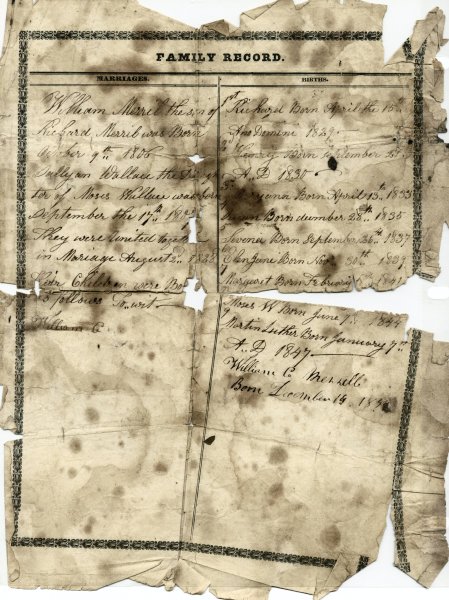 FAMILY RECORD.
MARRIAGES.
William Merrib the son of
Richard Merrib was Born
October 9th 1806
Sallyan Wallace the
ter of Moses Wallace was born
September the 17th
They were united together
in Mariage August 2
Their Children were
follows To wit
William C
BIRTHS.
1st Richard Born April the 15th
Ano Domine 1829
Henry Born
A. D 1830
Born April 13th 1833
Born desember 28th 1835
Born September 26th 1837
Jane Born Nov 30th 1839
Margaret Born February 1842
Moses W Born June 7th 1844
9 Martin Luther Born January 7th
A. D 1847
William C
Born December 13